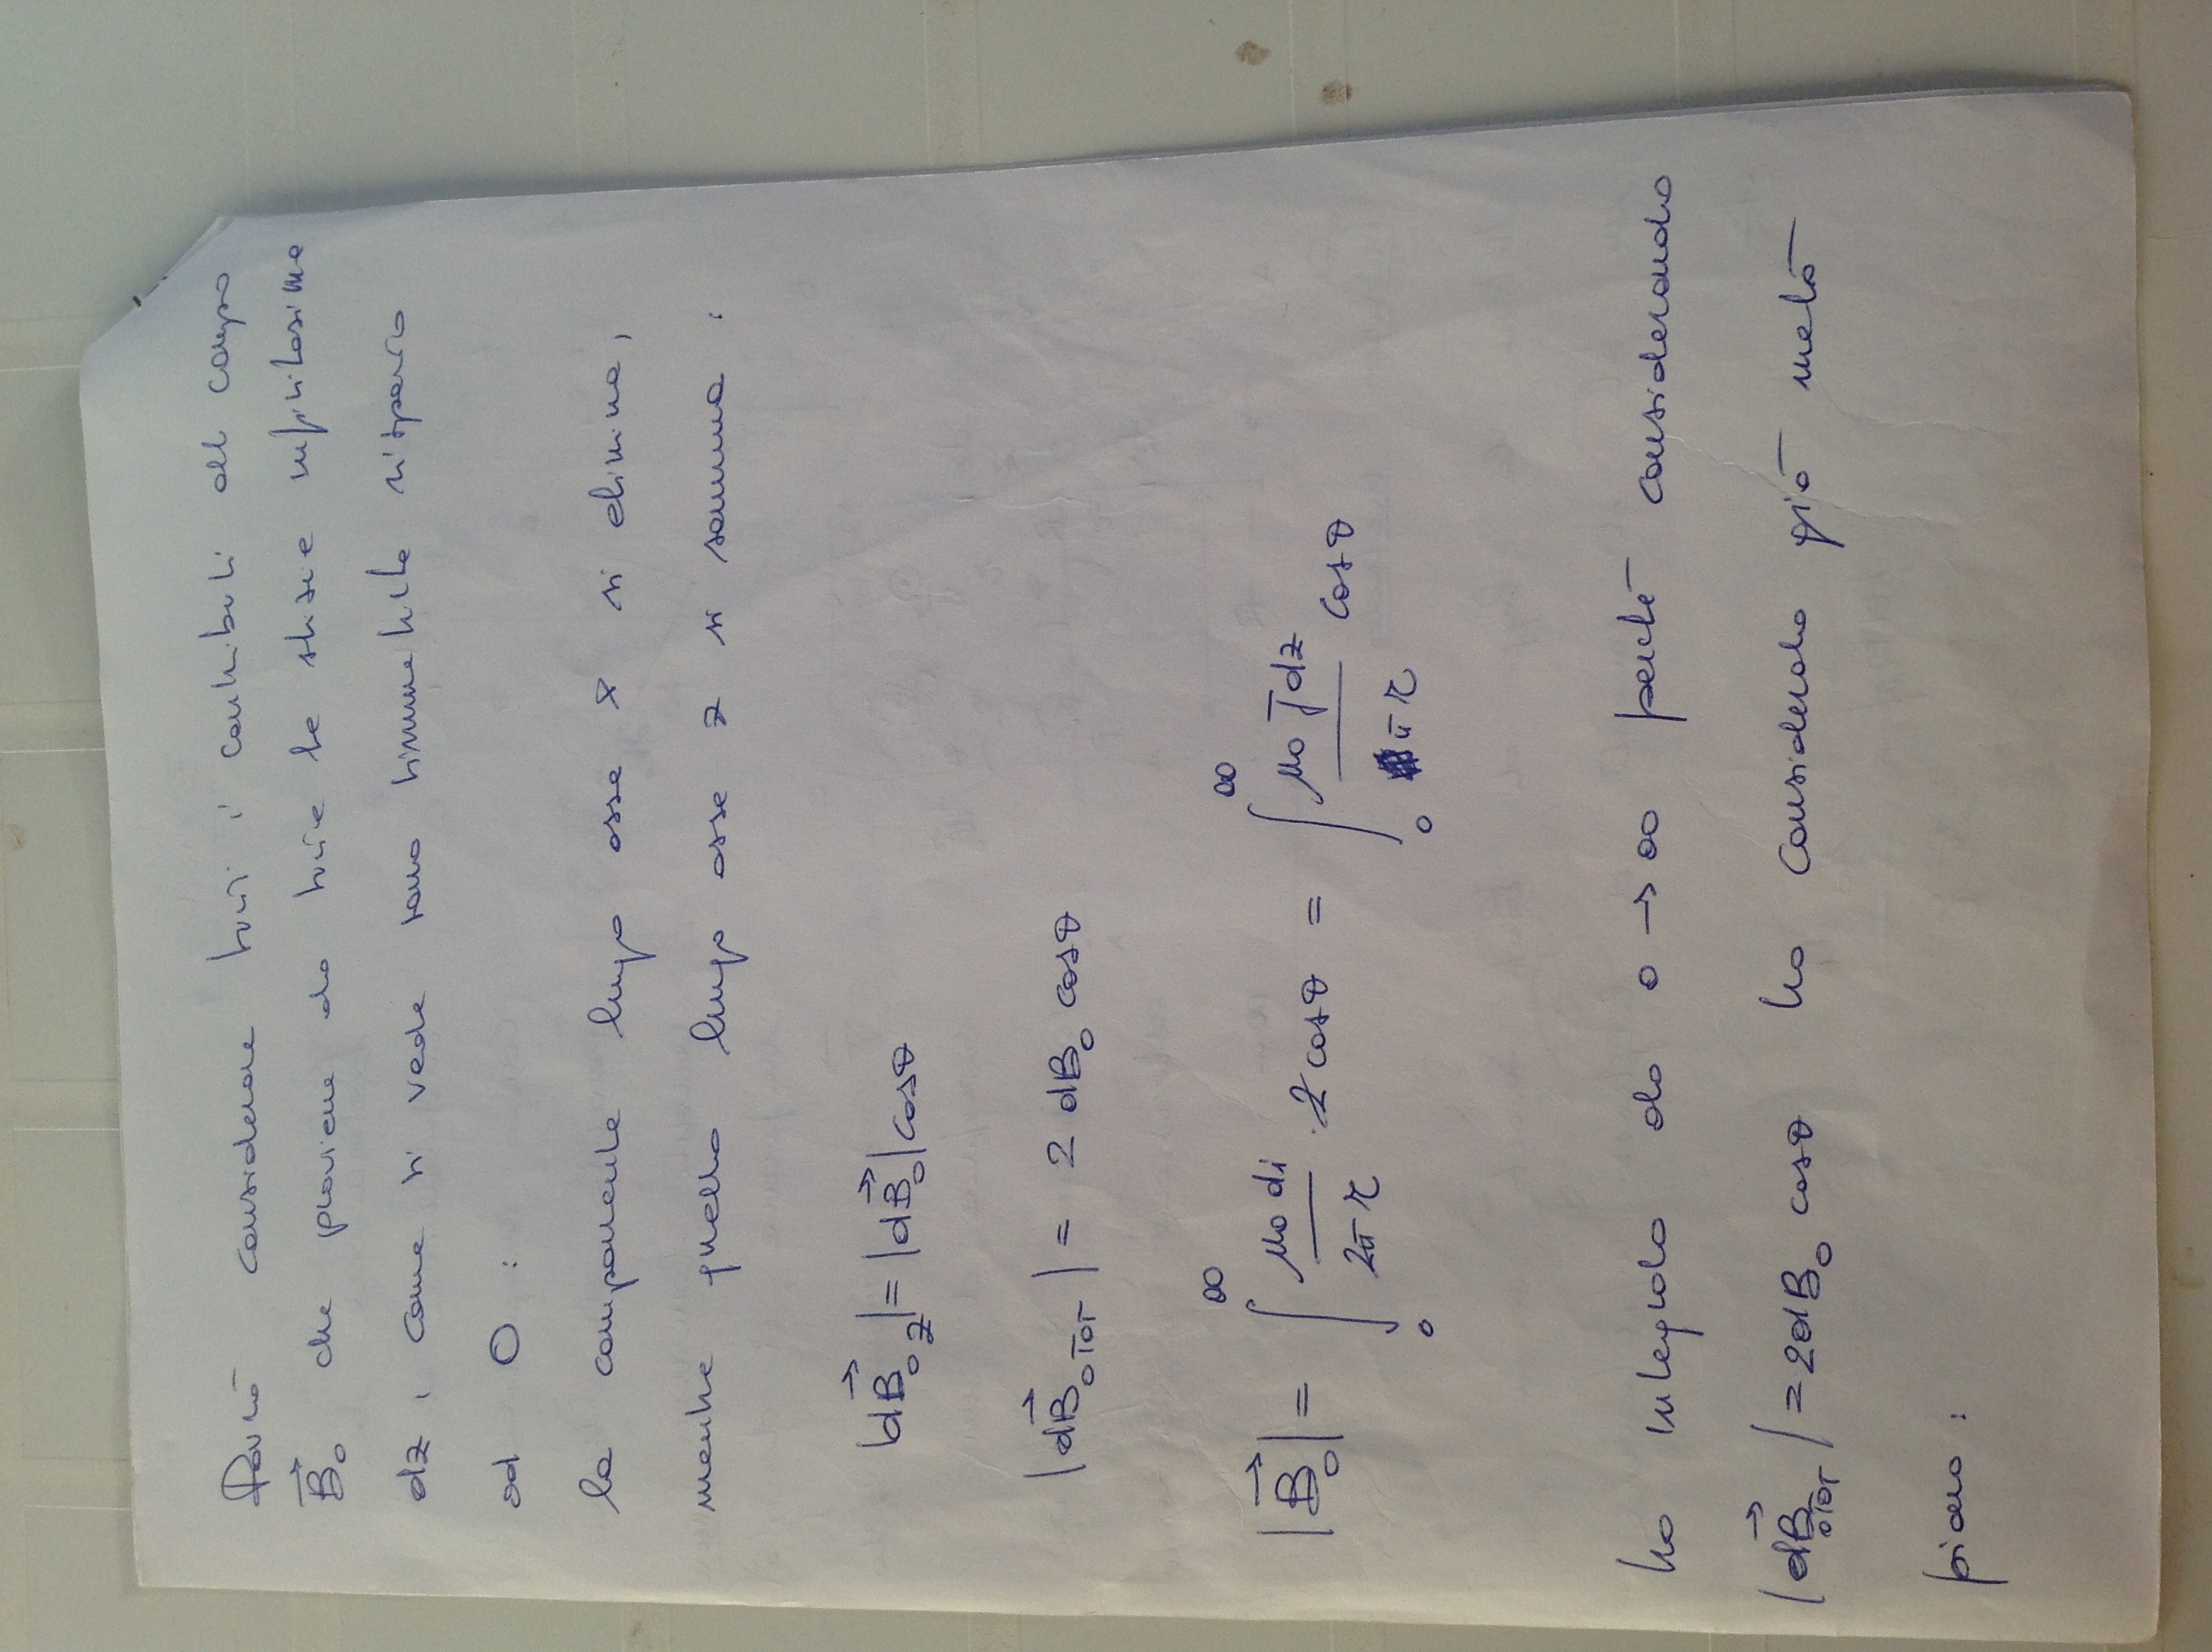 Dovrò considerare tutti i contributi al campo
B⃗₀ che proviene da tutte le strisce infinitesime
dz, come si vede sono simmetriche rispetto
ad O :
la componente lungo asse x si elimina,
mentre quella lungo asse z si somma :
|dB⃗₀z| = |dB⃗₀| cosθ
|dB⃗₀TOT| = 2 dB₀ cosθ
|B⃗₀| = ∫₀^∞ μ₀ di / 2πr · 2 cosθ = ∫₀^∞ μ₀ J dz / πr cosθ
ho integrato da 0 → ∞ perché considerando
|dB⃗₀TOT| = 2dB₀ cosθ ho considerato già metà
piano :